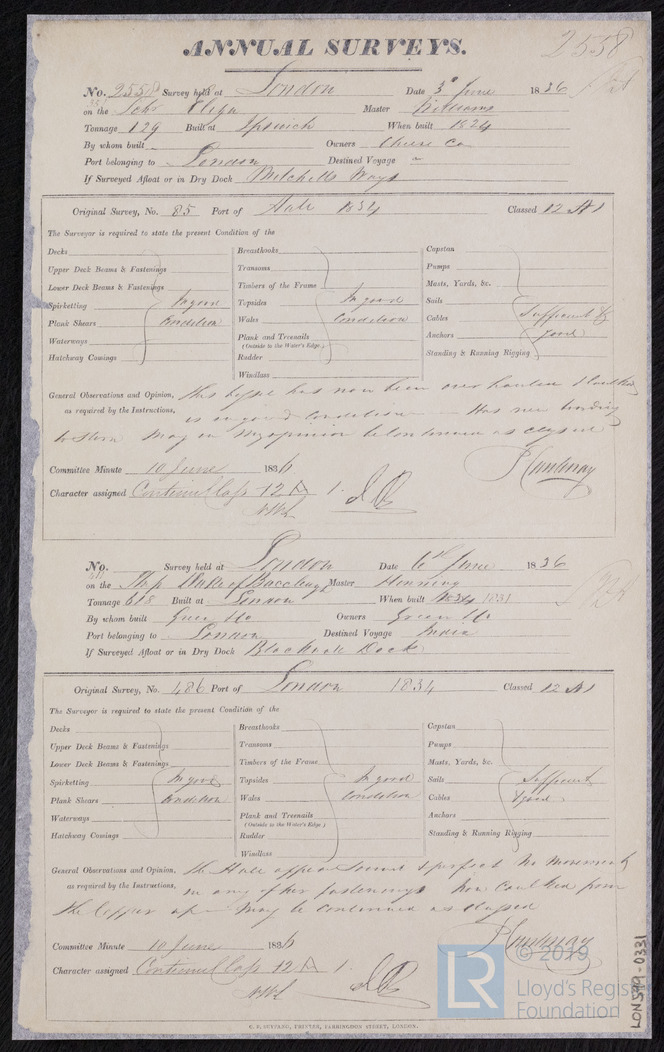 ANNUAL SURVEYS. 2558
No. 2558 Survey held at London Date 3d June 1836
on the Schr Eliza Master Williams
Tonnage 129 Built at Ipswich When built 1824
By whom built - Owners Cheese Co
Port belonging to London Destined Voyage -
If Surveyed Afloat or in Dry Dock Mitchells Ways
Original Survey, No. 85 Port of Hull 1834 Classed 12 A1
The Surveyor is required to state the present Condition of the
Decks Breasthooks Capstan
Upper Deck Beams & Fastenings Transoms Pumps
Lower Deck Beams & Fastenings Timbers of the Frame Masts, Yards, &c.
Spirketting In good Topsides In good Sails Sufficient &
Plank Shears Condition Wales Condition Cables good
Waterways Plank and Treenails Anchors
(Outside to the Water's Edge.)
Hatchway Comings Rudder Standing & Running Rigging
Windlass
General Observations and Opinion, this vessel has now been over hauled & caulked
as required by the Instructions, is in good Condition Has new
to Stern May in my opinion be continued as classed
P Courtenay
Committee Minute 10 June 1836
Character assigned Continued Class 12 A 1.
No. Survey held at London Date 6th June 1836
on the Ship Duke of Buccleugh Master Henning
Tonnage 618 Built at London When built 1834 1831
By whom built Green &Co Owners Green &Co
Port belonging to London Destined Voyage India
If Surveyed Afloat or in Dry Dock Blackwall Dock
Original Survey, No. 486 Port of London 1834 Classed 12 A1
The Surveyor is required to state the present Condition of the
Decks Breasthooks Capstan
Upper Deck Beams & Fastenings Transoms Pumps
Lower Deck Beams & Fastenings Timbers of the Frame Masts, Yards, &c.
Spirketting In good Topsides In good Sails Sufficient
Plank Shears Condition Wales Condition Cables &good
Waterways Plank and Treenails Anchors
(Outside to the Water's Edge.)
Hatchway Comings Rudder Standing & Running Rigging
Windlass
General Observations and Opinion, the Hull appears sound & perfect No movement
as required by the Instructions, in any of her fastenings Now Caulked from
the Copper up May be Continued as classed
P Courtenay
Committee Minute 10 June 1836
Character assigned Continued Class 12 A 1.
LR © 2019
Lloyd's Register
Foundation
LON599-0331